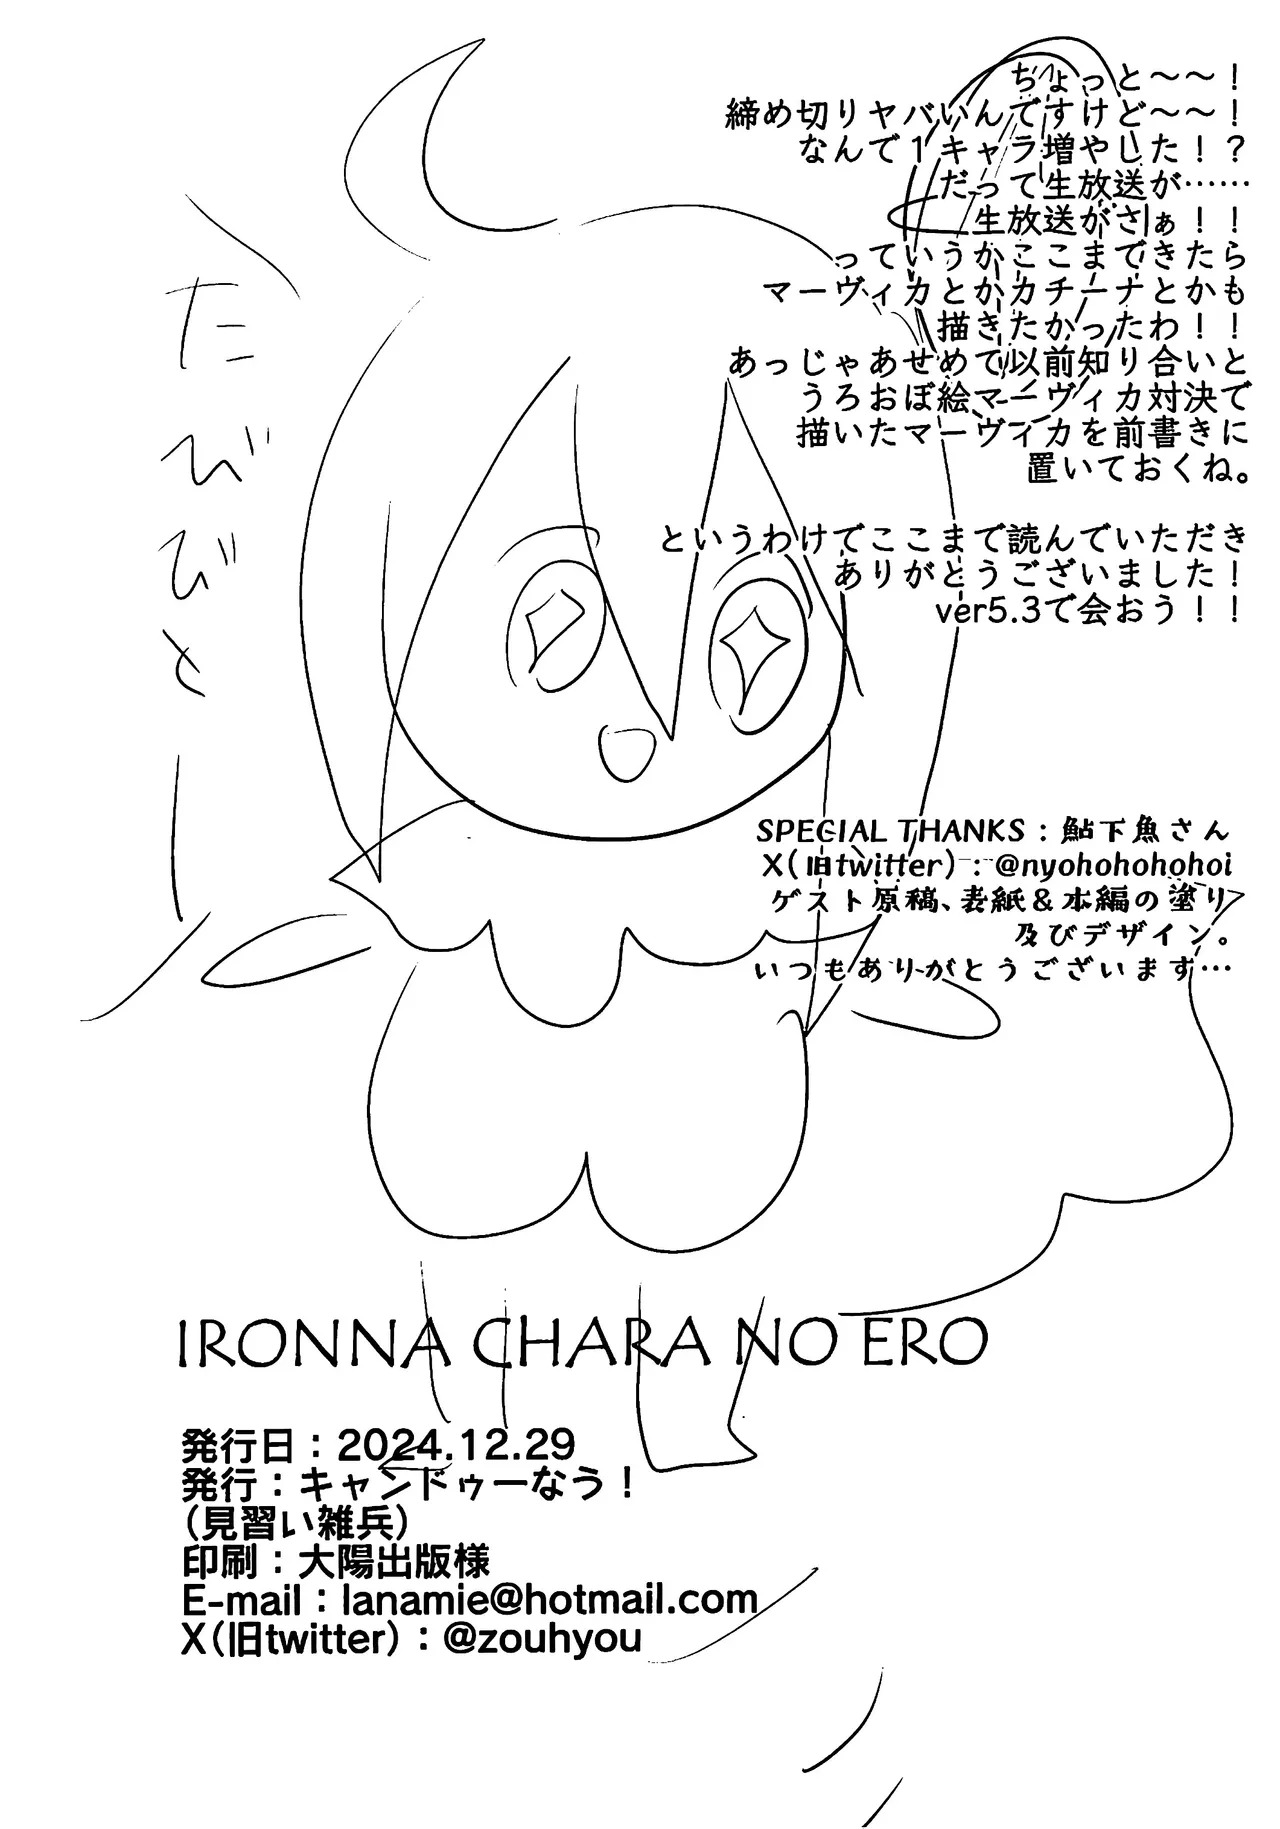 ちょっと〜〜！
締め切りヤバいんですけど〜〜！
なんで１キャラ増やした！？
だって生放送が……
生放送がさぁ！！
っていうかここまできたら
マーヴィカとかカチーナとかも
描きたかったわ！！
あっじゃあせめて以前知り合いと
うろおぼ絵マーヴィカ対決で
描いたマーヴィカを前書きに
置いておくね。
というわけでここまで読んでいただき
ありがとうございました！
ver5.3で会おう！！
たびびと
SPECIAL THANKS：鮎下魚さん
X(旧twitter)：@nyohohohohoi
ゲスト原稿、表紙＆本編の塗り
及びデザイン。
いつもありがとうございます…
IRONNA CHARA NO ERO
発行日：2024.12.29
発行：キャンドゥーなう！
(見習い雑兵)
印刷：大陽出版様
E-mail：lanamie@hotmail.com
X(旧twitter)：@zouhyou